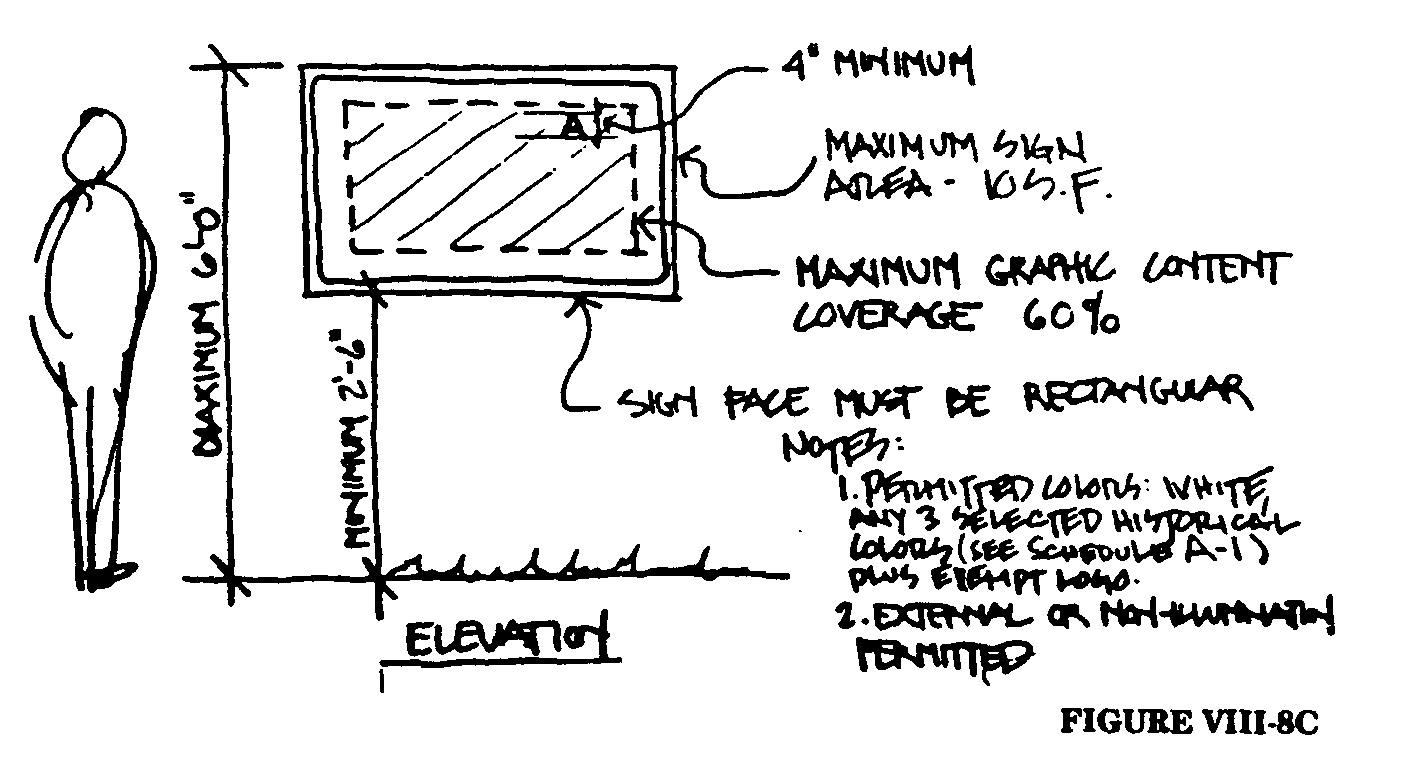 4" MINIMUM
A
MAXIMUM SIGN
AREA - 10 S.F.
MAXIMUM GRAPHIC CONTENT
COVERAGE 60%
SIGN FACE MUST BE RECTANGULAR
MAXIMUM 6'-0"
MINIMUM 2'-6"
NOTES:
1. PERMITTED COLORS: WHITE,
ANY 3 SELECTED HISTORICAL
COLORS (SEE SCHEDULE A-1)
PLUS EXEMPT LOGO.
2. EXTERNAL OR NON-ILLUMINATION
PERMITTED
ELEVATION
FIGURE VIII-8C